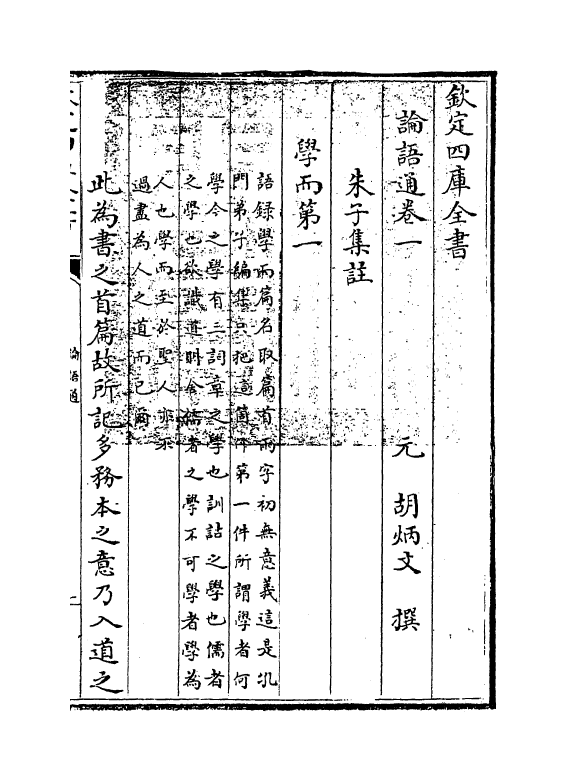 欽定四庫全書
論語通卷一 元 胡炳文 撰
朱子集註
學而第一
語録學而篇名取篇首兩字初無意義這是孔
門弟子編集只把這箇作第一件所謂學者何
學今之學有三詞章之學也訓詁之學也儒者
之學也欲識道則舍儒者之學不可學者學為
人也學而至於聖人亦不
過盡為人之道而已爾
此為書之首篇故所記多務本之意乃入道之
論語通